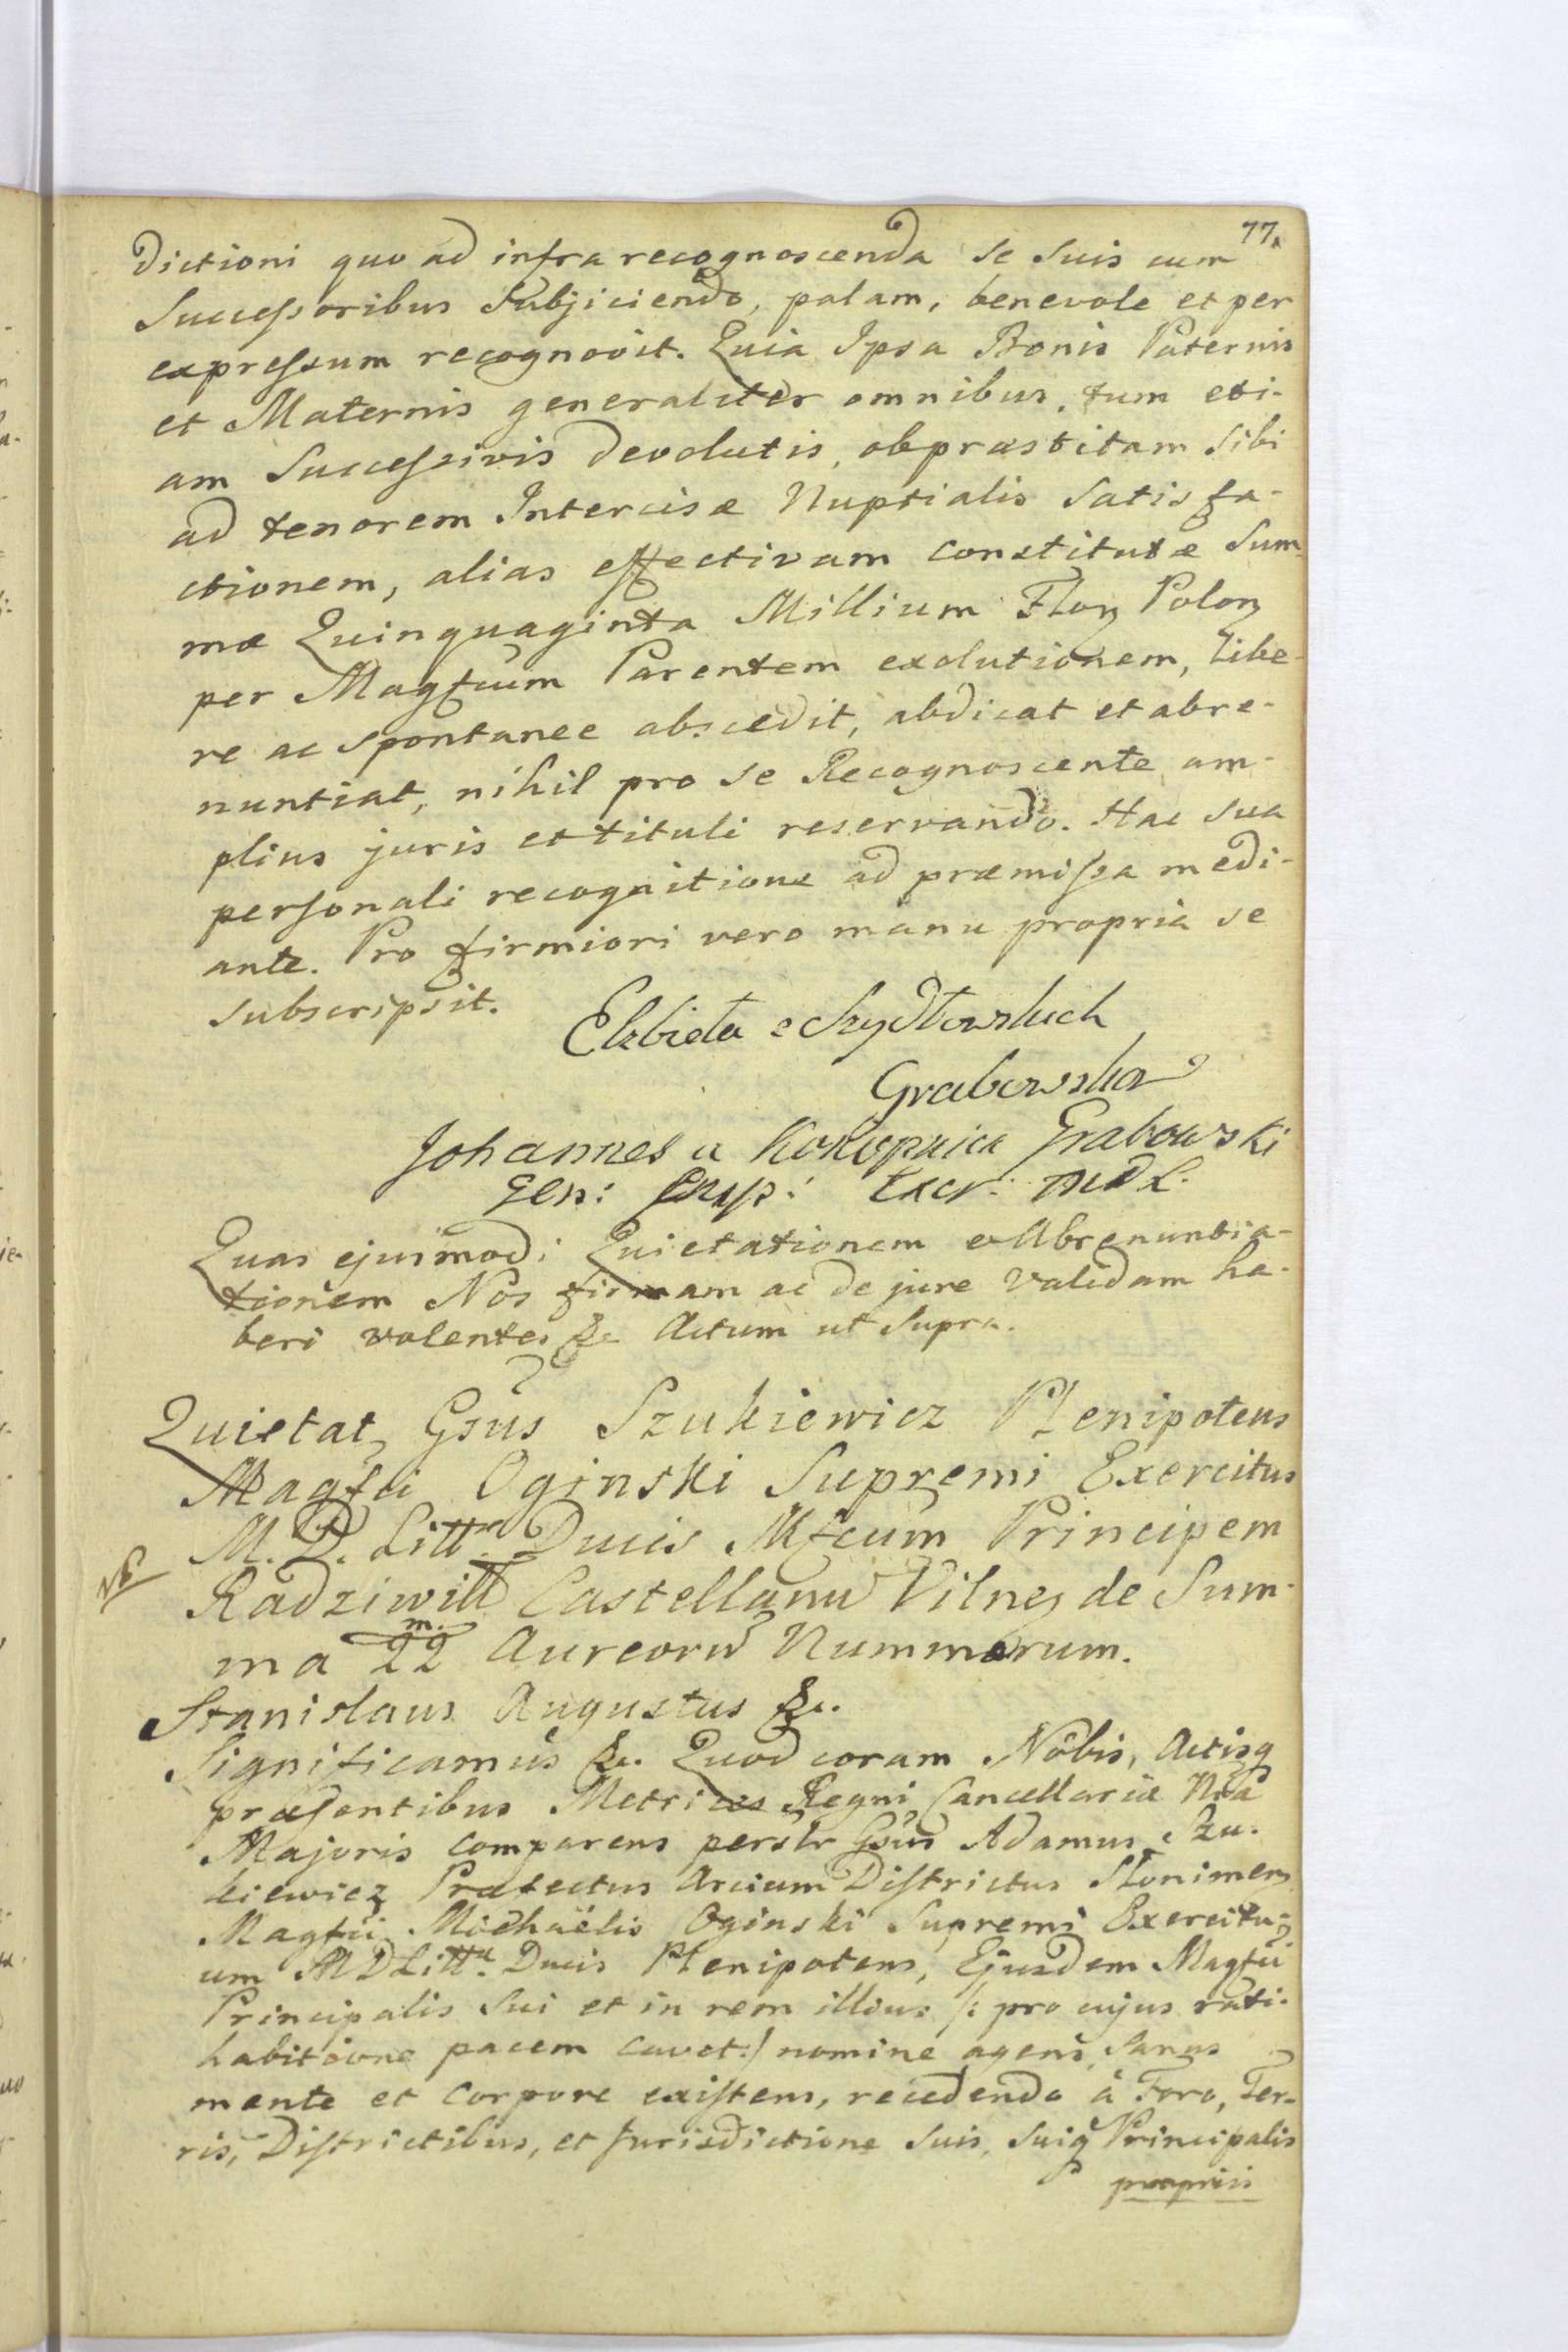 77.
dictioni quo ad infra recognoscenda se suis cum
Successoribus Subjiciendo, palam, benevole et per
expressum recognovit. Quia Ipsa Bonis Paternis
et Maternis generaliter omnibus, tum eti-
am Successivis devolutis, ob præstitam sibi
ad tenorem Intercisæ Nuptialis satisfa-
ctionem, alias effectivam constitutæ Sum-
mæ Quinquaginta Millium Flor Polon
per Magfcum Parentem exolutionem, libe-
re ac spontanee abscedit, abdicat et abre-
nuntiat, nihil pro se Recognoscente am-
plius juris et tituli reservando. Hac sua
personali recognitione ad præmissa medi-
ante. Pro firmiori vero manu propria se
subscripsit.
Elzbieta z Szydłowskich
Grabowska
Johannes a Konopnica Grabowski
Gen: Exer: MDL.
Quas ejusmodi Quietationem et Abrenuntia-
tionem Nos firmam ac de jure validam ha-
beri volentes &c Actum ut Supra.
Quietat Gsus Szukiewicz Plenipotens
Magfci Oginski Supremi Exercitus
M. D. Litt. Ducis Mfcum Principem
NB
Radziwill Castellanu Vilnen de Sum-
m.
ma 22 Aureoru Nummorum.
Stanislaus Augustus &c.
Significamus &c. Quod coram Nobis, Actisq
præsentibus Metrices Regni Cancellariæ Nra
Majoris comparens perslr Gsus Adamus Szu-
kiewicz Præfectus Arcium Districtus Słonimen
Magfci Michaelis Oginski Supremi Exercitu-
um MDLitt. Ducis Plenipotens, Ejusdem Magfci
Principalis Sui et in rem illius /: pro cujus rati-
habitione pacem cavet:/ nomine agens, sanus
mente et corpore existens, recedendo à Foro, Ter-
ris, Districtibus, et Jurisdictione suis, suiq Principalis
propriis